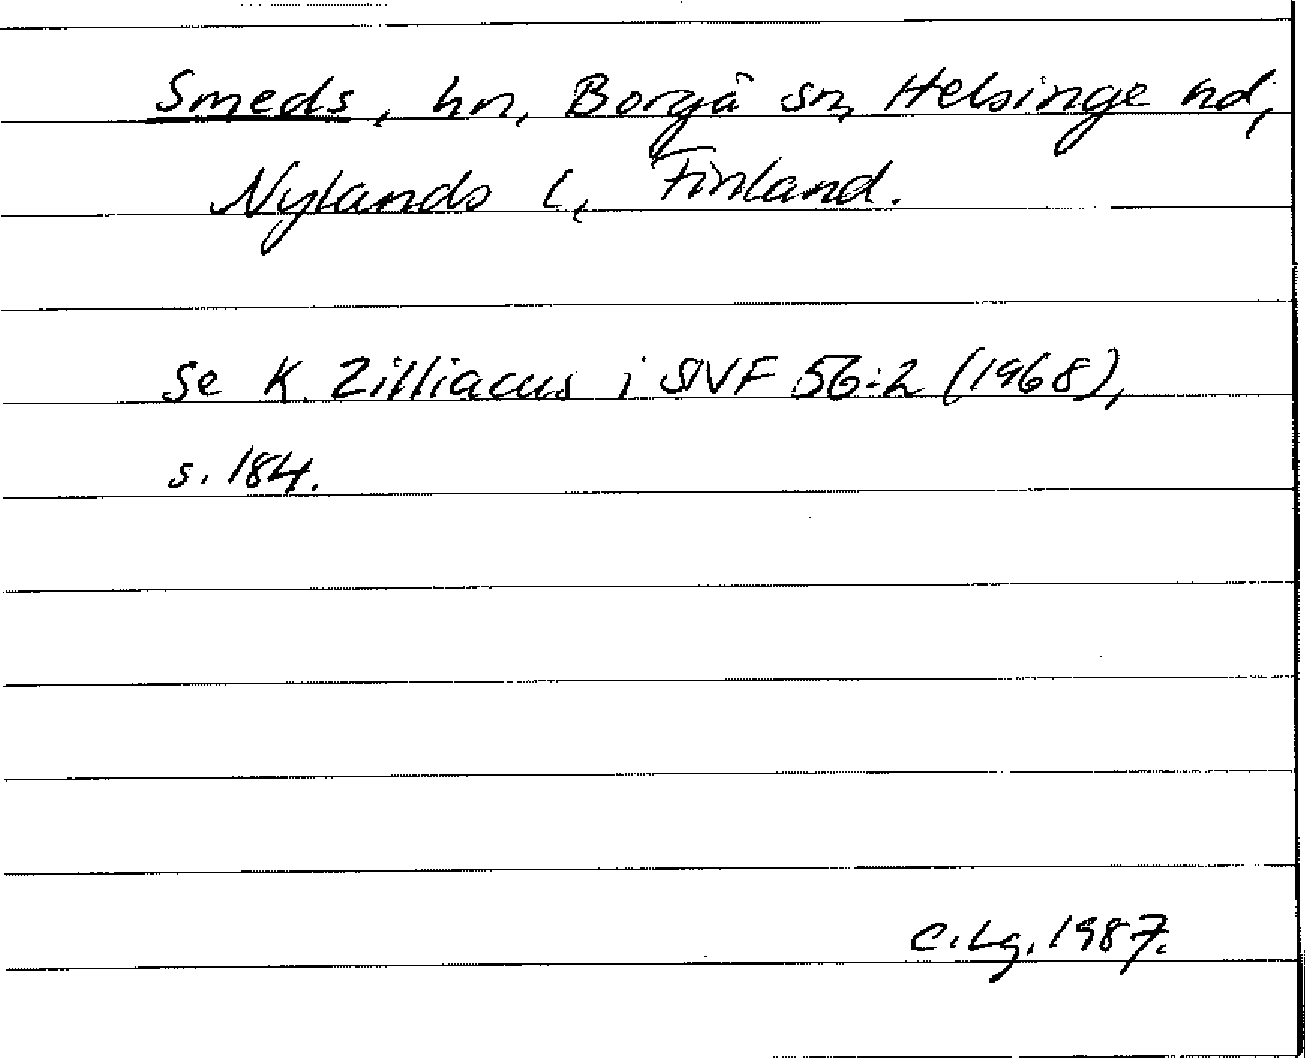 Smeds, hn, Borgå sn, Helsinge hd,
Nylands l, Finland.
Se K. Zilliacus i SNF 56:2 (1968),
s. 184.
C. Lg. 1987.